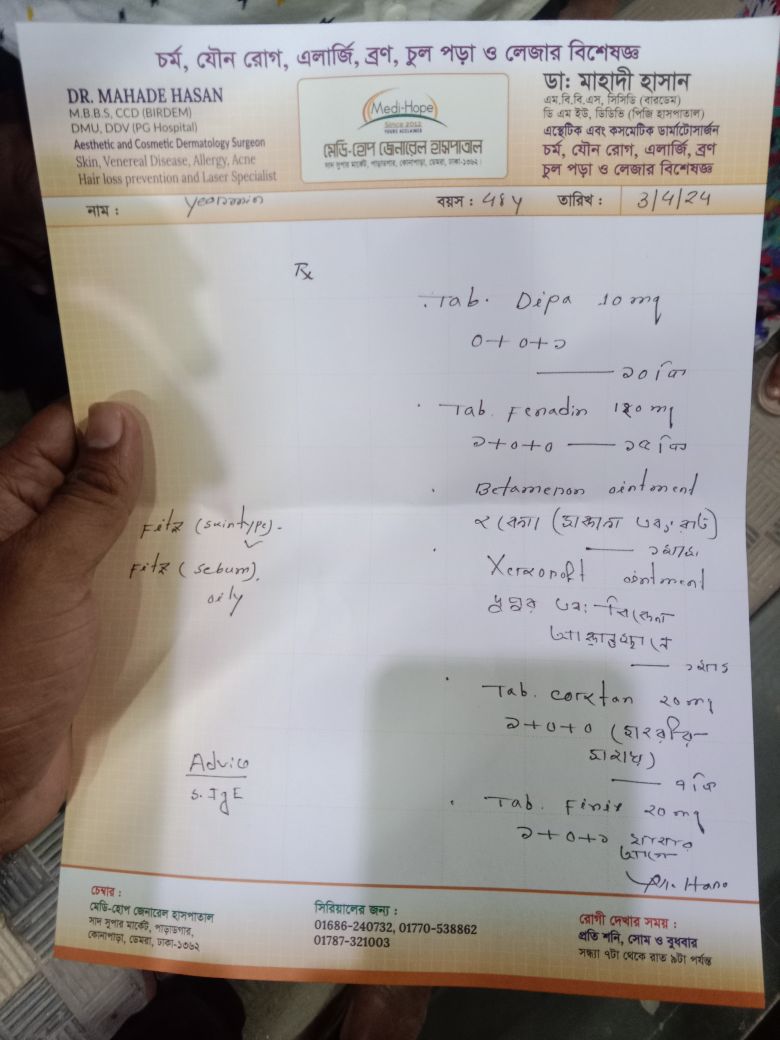 চর্ম, যৌন রোগ, এলার্জি, ব্রণ, চুল পড়া ও লেজার বিশেষজ্ঞ
DR. MAHADE HASAN
M.B.B.S, CCD (BIRDEM)
DMU, DDV (PG Hospital)
Aesthetic and Cosmetic Dermatology Surgeon
Skin, Venereal Disease, Allergy, Acne
Hair loss prevention and Laser Specialist
Medi-Hope
Since 2012
মেডি-হোপ জেনারেল হাসপাতাল
সাদ সুপার মার্কেট, পাড়াডগার, কোনাপাড়া, ডেমরা, ঢাকা-১৩৬২।
ডা: মাহাদী হাসান
এম.বি.বি.এস, সিসিডি (বারডেম)
ডি এম ইউ, ডিডিভি (পিজি হাসপাতাল)
এস্থেটিক এবং কসমেটিক ডার্মাটোসার্জন
চর্ম, যৌন রোগ, এলার্জি, ব্রণ
চুল পড়া ও লেজার বিশেষজ্ঞ
নাম :
বয়স : 48 y
তারিখ : 3/4/24
Rx
Tab. Dipa 10 mg
০+০+১
১০ দি
Tab. Fenadin 120 mg
১+০+০ — ১৫ দি
Betameson ointment
২ বেলা (সকাল এবং রাত)
Fitz (skintype)-
Fitz (sebum).
oily
ointment
দুপুর এবং বিকেল
Tab. Cortan 20 mg
১+০+০
৭ দি
Advice
S. IgE
Tab. Finix 20 mg
১+০+১ খাবার
আগে
চেম্বার :
মেডি-হোপ জেনারেল হাসপাতাল
সাদ সুপার মার্কেট, পাড়াডগার,
কোনাপাড়া, ডেমরা, ঢাকা-১৩৬২
সিরিয়ালের জন্য :
01686-240732, 01770-538862
01787-321003
রোগী দেখার সময় :
প্রতি শনি, সোম ও বুধবার
সন্ধ্যা ৭টা থেকে রাত ৯টা পর্যন্ত